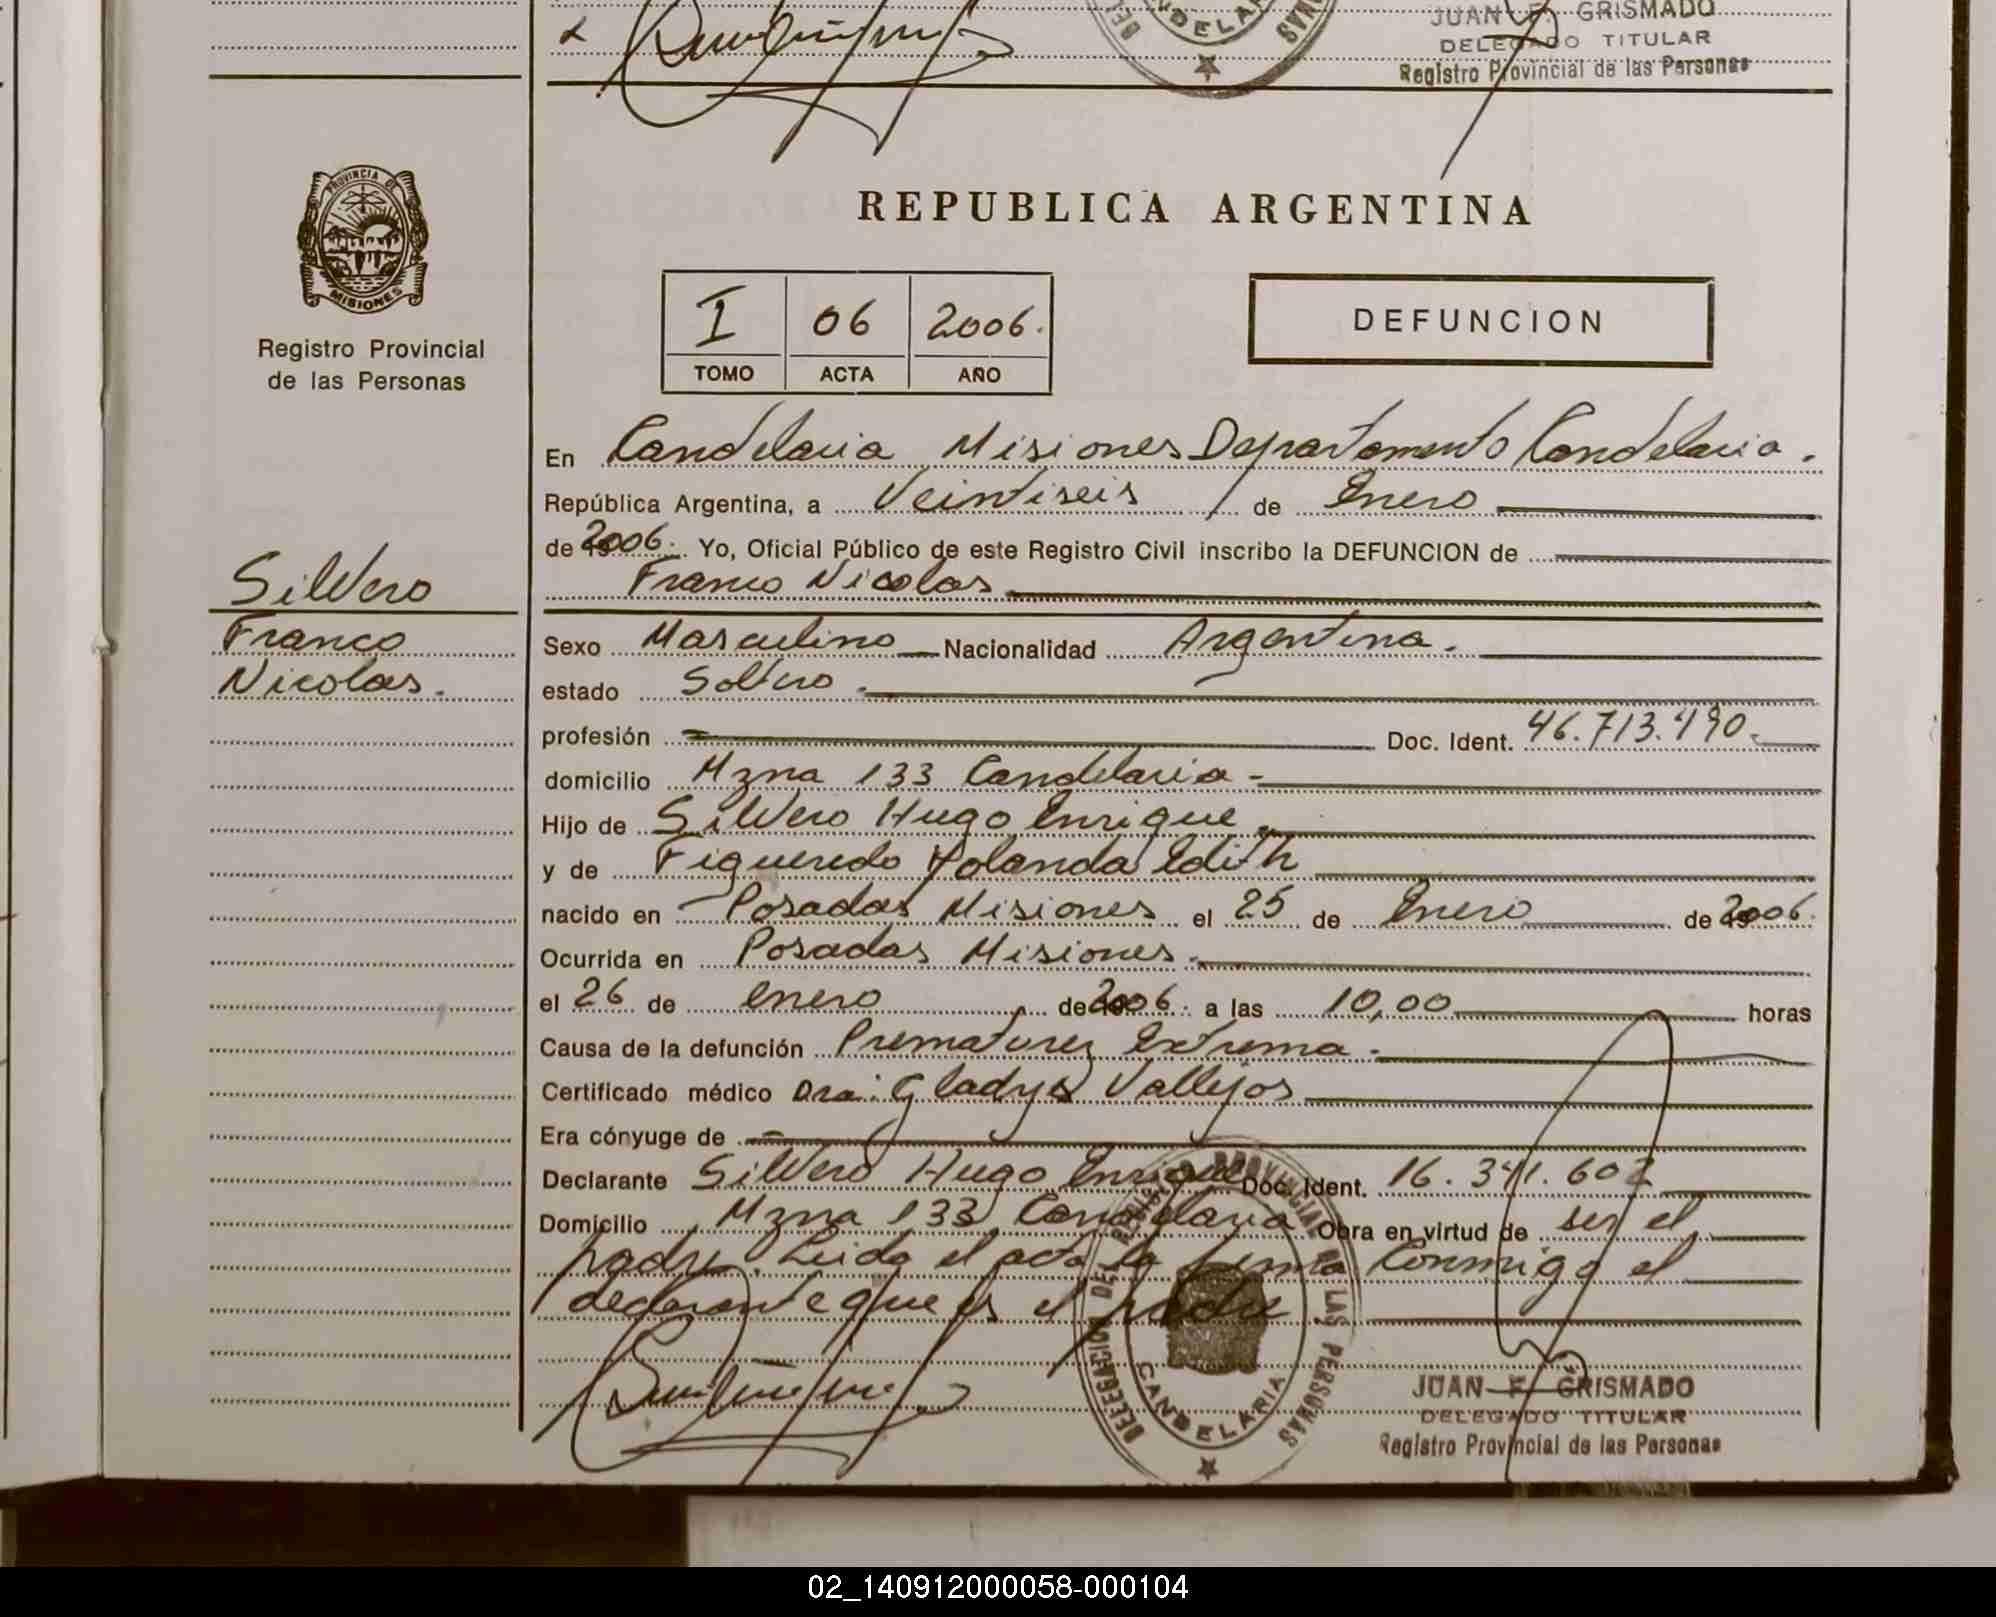 JUAN F. GRISMADO
DELEGADO TITULAR
Registro Provincial de las Personas
CANDELARIA
PROVINCIA DE
MISIONES
Registro Provincial
de las Personas
REPUBLICA ARGENTINA
I 06 2006.
TOMO ACTA AÑO
DEFUNCION
En Candelaria Misiones Departamento Candelaria.
República Argentina, a Veintiseis / de Enero
de 2006. Yo, Oficial Público de este Registro Civil inscribo la DEFUNCION de
Franco Nicolas
Silvero
Franco
Nicolas.
Sexo Masculino Nacionalidad Argentina.
estado Soltero.
profesión Doc. Ident. 46.713.490.
domicilio Mzna 133 Candelaria
Hijo de Silvero Hugo Enrique
y de Figueredo Yolanda Edith
nacido en Posadas Misiones el 25 de Enero de 2006.
Ocurrida en Posadas Misiones.
el 26 de enero de 2006. a las 10,00 horas
Causa de la defunción Prematurez Extrema.
Certificado médico Dra: Gladys Vallejos
Era cónyuge de
Declarante Silvero Hugo Enrique Doc. Ident. 16.341.602
Domicilio Mzna 133 Candelaria Obra en virtud de ser el
padre. Leida el acta la firma conmigo el
declarante que es el padre
DELEGACION DEL REGISTRO PROVINCIAL DE LAS PERSONAS
CANDELARIA
JUAN F. GRISMADO
DELEGADO TITULAR
Registro Provincial de las Personas
02_140912000058-000104